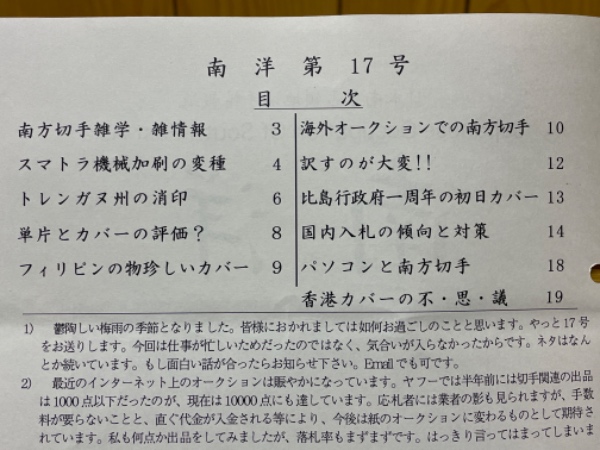 南洋第17号
目次
南方切手雑学・雑情報 3
スマトラ機械加刷の変種 4
トレンガヌ州の消印 6
単片とカバーの評価? 8
フィリピンの物珍しいカバー 9
海外オークションでの南方切手 10
訳すのが大変!! 12
比島行政府一周年の初日カバー 13
国内入札の傾向と対策 14
パソコンと南方切手 18
香港カバーの不・思・議 19
1) 鬱陶しい梅雨の季節となりました。皆様におかれましては如何お過ごしのことと思います。やっと17号
をお送りします。今回は仕事が忙しいためだったのではなく、気合いが入らなかったからです。ネタはなん
とか続いています。もし面白い話が合ったらお知らせ下さい。Emailでも可です。
2) 最近のインターネット上のオークションは賑やかになっています。ヤフーでは半年前には切手関連の出品
は1000点以下だったのが、現在は10000点にも達しています。応札者には業者の影も見られますが、手数
料が要らないことと、直ぐ代金が入金される等により、今後は紙のオークションに変わるものとして期待さ
れています。私も何点か出品をしてみましたが、落札率もまずまずです。はっきり言ってはまってしまいま